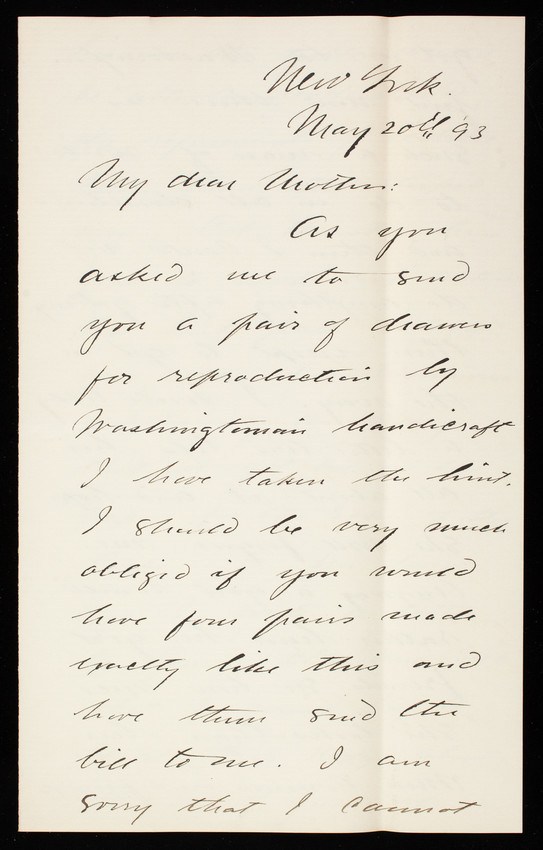 New York.
May 20th '93
My dear Mother:
As you
asked me to send
you a pair of drawers
for reproduction by
Washingtonian handicraft
I have taken the hint.
I should be very much
obliged if you would
have four pairs made
exactly like this and
have them send the
bill to me. I am
sorry that I cannot